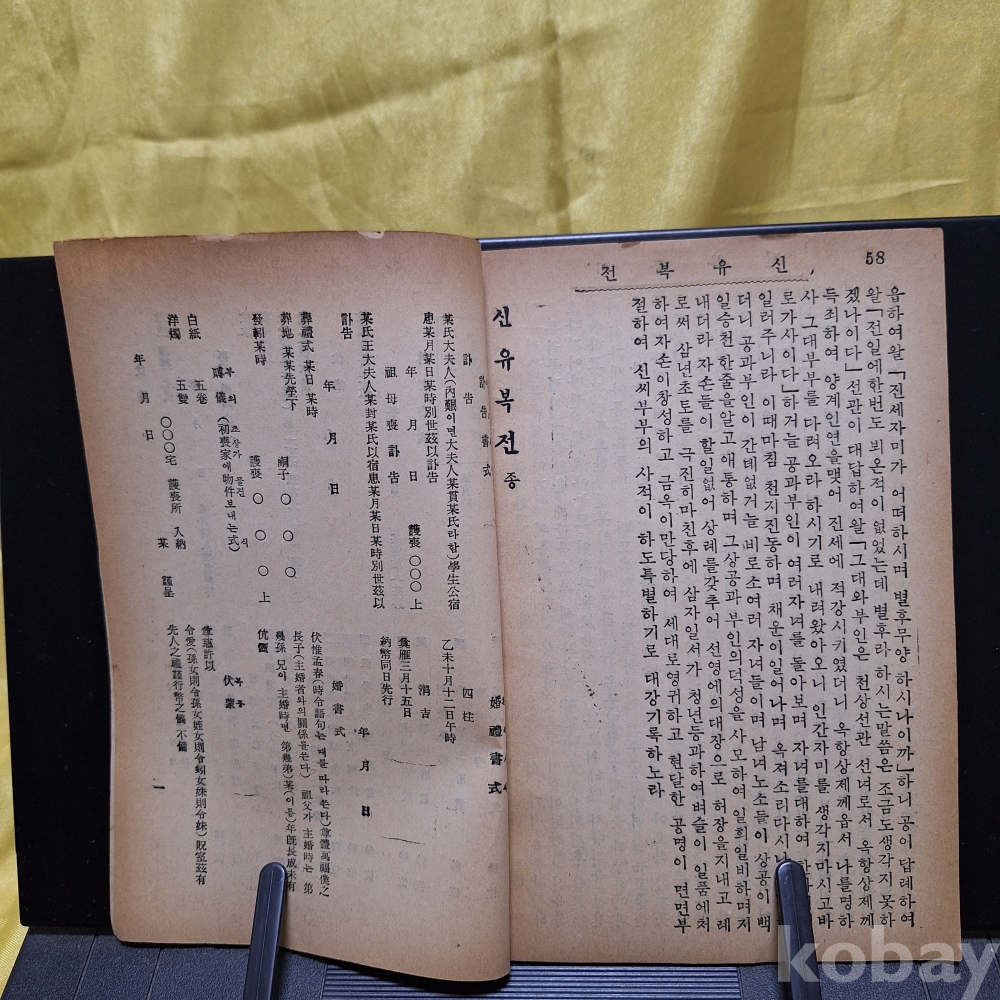 58
신유복전
읍하여왈「진세자미가 어떠하시며 별후무양 하시나이까」하니 공이 답례하여
왈「전일에한번도 뵈온적이 없었는데 별후라 하시는말씀은 조금도생각지 못하
겠나이다」선관이 대답하여왈「그대와부인은 천상선관 선녀로서 옥항상제께
득죄하여 양계인연을맺어 진세에 적강시키였더니 옥항상제께옵서 나를명하
사 그대부부를 다려오라 하시기로 내려왔아오니 인간자미를 생각지마시고바
로가사이다」하거늘 공과부인이 여러자녀를 돌아보며 자녀를대하여
일러주니라 이때마침 천지진동하며 채운이일어나며 옥저소리다시
더니 공과부인이 간데없거늘 비로소여러 자녀들이며 남녀노소들이 상공이 백
일승천 한줄을알고애통하며 그상공과 부인의덕성을 사모하여 일희일비하며지
내더라 자손들이 할일없어 상례를갖추어 선영에의대장으로 허장을지내고 레
로써 삼년초토를 극진히마친후에 삼자일서가 청년등과하여벼슬이 일품에처
하여자손이창성하고 금옥이만당하여 세대로영귀하고 현달한 공명이 면면부
절하여 신씨부부의 사적이 하도특별하기로 대강기록하노라
신유복전 종
訃告書式
訃告
某氏大夫人(內艱이면大夫人某貫某氏라함)學生公宿
患某月某日某時別世玆以訃告
年 月 日 護喪〇〇〇上
祖母喪訃告
某氏王大夫人某封某氏以宿患某月某日某時別世玆以
訃告
年 月 日
葬禮式 某日某時
葬地 某某先塋下 嗣子〇〇〇
發靷某時 護喪〇〇〇上
賻儀(初喪家에物件보내는式)
白紙 五卷
洋燭 五雙 〇〇〇宅 護喪所 入納
年 月 日 某 謹呈
婚禮書式
四柱
乙未十月十二日午時
涓吉
奠雁三月十五日
納幣同日先行
年 月 日
婚書式
伏惟孟春(時令語句는 때를 따라 쓴다)尊體萬福僕之
長子(主婚者와의關係를쓴다) 祖父가 主婚時는 第
幾孫 兄이 主婚時면 第幾弟)某(이름)年旣長成未有
伉儷 伏蒙
尊慈許以
令愛(孫女則令孫女姪女則令姪女妹則令妹)貺室玆有
先人之禮謹行幣之儀 不備
一
kobay